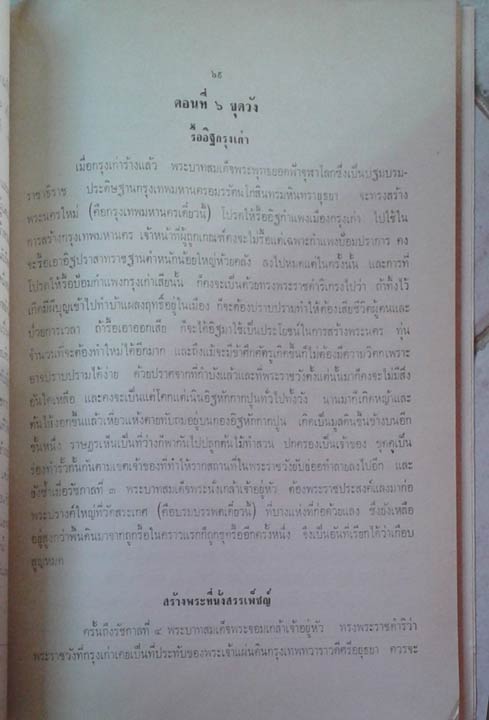 ๖๙
ตอนที่ ๖ ขุดวัง
รื้ออิฐกรุงเก่า
เมื่อกรุงเก่าร้างแล้ว พระบาทสมเด็จพระพุทธยอดฟ้าจุฬาโลกซึ่งเป็นปฐมบรม-
ราชาธิราช ประดิษฐานกรุงเทพมหานครอมรรัตนโกสินทรมหินทรายุธยา จะทรงสร้าง
พระนครใหม่ (คือกรุงเทพมหานครเดี๋ยวนี้) โปรดให้รื้ออิฐกำแพงเมืองกรุงเก่า ไปใช้ใน
การสร้างกรุงเทพมหานคร เจ้าหน้าที่ผู้ถูกเกณฑ์คงจะไม่รื้อแต่เฉพาะกำแพงป้อมปราการ คง
จะรื้อเอาอิฐปราสาทราชฐานตำหนักน้อยใหญ่ห้วยคลัง ลงไปหมดแต่ในครั้งนั้น และการที่
โปรดให้รื้อป้อมกำแพงกรุงเก่าเสียนั้น ก็คงจะเป็นด้วยทรงพระราชดำริเกรงไปว่า ถ้าทิ้งไว้
เกิดมีผีบุญเข้าไปทำบ้าแผลงฤทธิ์อยู่ในเมือง ก็จะต้องปราบปรามทำให้ต้องเสียชีวิตผู้คนและ
ป่วยการเวลา ถ้ารื้อเอาออกเสีย ก็จะได้อิฐมาใช้เป็นประโยชน์ในการสร้างพระนคร ทุ่น
จำนวนที่จะต้องทำใหม่ได้อีกมาก และถึงแม้จะมีข้าศึกศัตรูเกิดขึ้นก็ไม่ต้องมีความวิตกเพราะ
อาจปราบปรามได้ง่าย ด้วยปราศจากที่กำบังแล้วและที่พระราชวังตั้งแต่นั้นมาก็คงจะไม่มีสิ่ง
อันใดเหลือ และคงจะเป็นแต่โคกแต่เนินอิฐหักกากปูนทั่วไปทั้งวัง นานมาก็เกิดหญ้าและ
ต้นไม้งอกขึ้นแล้วเหี่ยวแห้งตายทับถมอยู่บนกองอิฐหักกากปูน เกิดเป็นมูลดินขึ้นข้างบนอีก
ชั้นหนึ่ง ราษฎรเห็นเป็นที่ว่างก็พากันไปปลูกต้นไม้ทำสวน ปกครองเป็นเจ้าของ ขุดคูเป็น
ร่องทำรั้วกั้นกันตามเขตเจ้าของที่ทำให้รากสถานที่ในพระราชวังยับย่อยทำลายลงไปอีก และ
ยังซ้ำเมื่อรัชกาลที่ ๓ พระบาทสมเด็จพระนั่งเกล้าเจ้าอยู่หัว ต้องพระราชประสงค์แลงมาก่อ
พระปรางค์ใหญ่ที่วัดสระเกศ (คือบรมบรรพตเดี๋ยวนี้) ที่บางแห่งที่ก่อด้วยแลง ซึ่งยังเหลือ
อยู่สูงกว่าพื้นดินมาจากถูกรื้อในคราวแรกก็ถูกขุดรื้ออีกครั้งหนึ่ง จึงเป็นอันที่เรียกได้ว่าเกือบ
สูญหมด
สร้างพระที่นั่งสรรเพ็ชญ์
ครั้นถึงรัชกาลที่ ๔ พระบาทสมเด็จพระจอมเกล้าเจ้าอยู่หัว ทรงพระราชดำริว่า
พระราชวังที่กรุงเก่าเคยเป็นที่ประทับของพระเจ้าแผ่นดินกรุงเทพทวาราวดีศรีอยุธยา ควรจะ